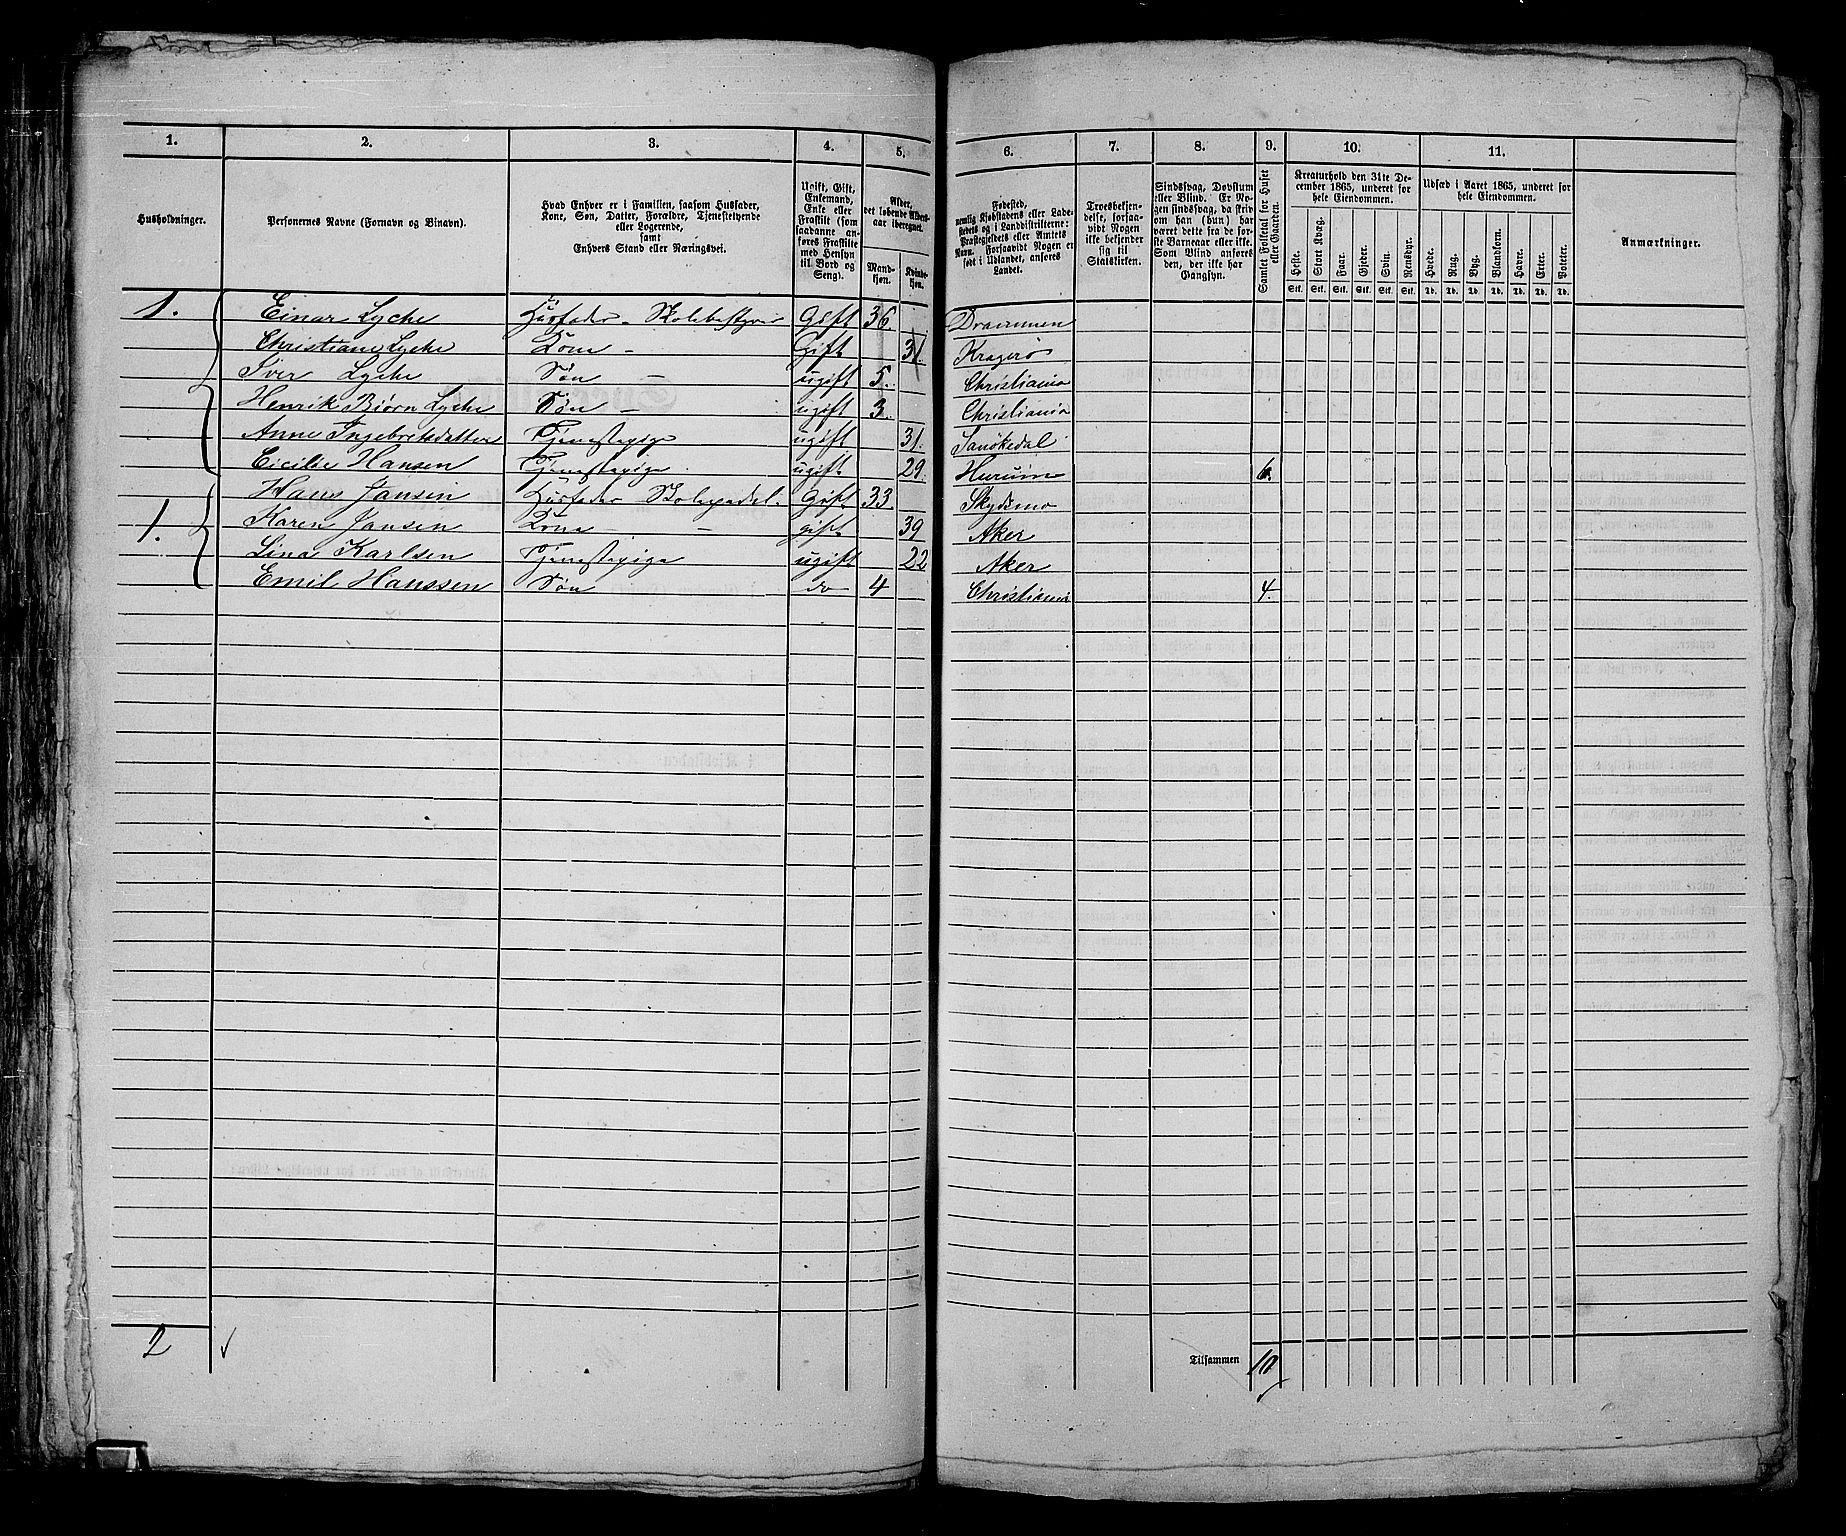 1. 2. 3. 4. 5. 6. 7. 8. 9. 10. 11.
Husholdninger.
Personernes Navne (Fornavn og Binavn).
Hvad Enhver er i Familien, saasom Husfader,
Kone, Søn, Datter, Forældre, Tjenestetyende
eller Logerende,
samt
Enhvers Stand eller Næringsvei.
Ugift, Gift,
Enkemand,
Enke eller
Fraskilt (som
saadanne an-
føres Fraskilte
med Hensyn
til Bord og
Seng).
Alder,
det løbende Alders-
aar iberegnet.
Mand-
kjøn.
Kvinde-
kjøn.
Fødested,
nemlig Kjøbstadens eller Lade-
stedets og i Landdistrikterne:
Præstegjeldets eller Amtets
Navn. Forsaavidt Nogen er
født i Udlandet, anføres
Landet.
Troesbekjen-
delse, forsaa-
vidt Nogen
ikke bekjender
sig til
Statskirken.
Sindssvag, Døvstum
eller Blind. (Er No-
gen sindssvag, da skriv
om han (hun) har
været dette fra de før-
ste Barneaar eller ikke.
Som Blind anføres
den, der ikke har
Gangsyn.
Samlet Folketal for Huset
eller Gaarden.
Kreaturhold den 31te De-
cember 1865, underet for
hele Eiendommen.
Heste. Stort Kvæg. Faar. Gjeder. Svin. Rensdyr.
Stk. Stk. Stk. Stk. Stk. Stk.
Udsæd i Aaret 1865, underet for
hele Eiendommen.
Hvede. Rug. Byg. Blandkorn. Havre. Erter. Poteter.
Td. Td. Td. Td. Td. Td. Td.
Anmærkninger.
1. Einar Lyche Husfader - Skolebestyrer Gift 36. Drammen
Christiane Lyche Kone - Gift 31. Kragerø
Iver Lyche Søn - ugift 5. Christiania
Henrik Biørn Lyche Søn - ugift 3. Christiania
Anne Ingebretsdatter Tjenestepige ugift 31. Sanökedal
Cicilie Hansen Tjenestepige ugift 29. Hurum 6.
1. Hans Jansen Husfader Skolepedel. Gift 33. Skydsmo
Karen Jansen Kone - - gift 39 Aker
Lina Karlsen Tjenestepige ugift 22 Aker
Emil Hanssen Søn do 4 Christiania 4.
2 Tilsammen 10